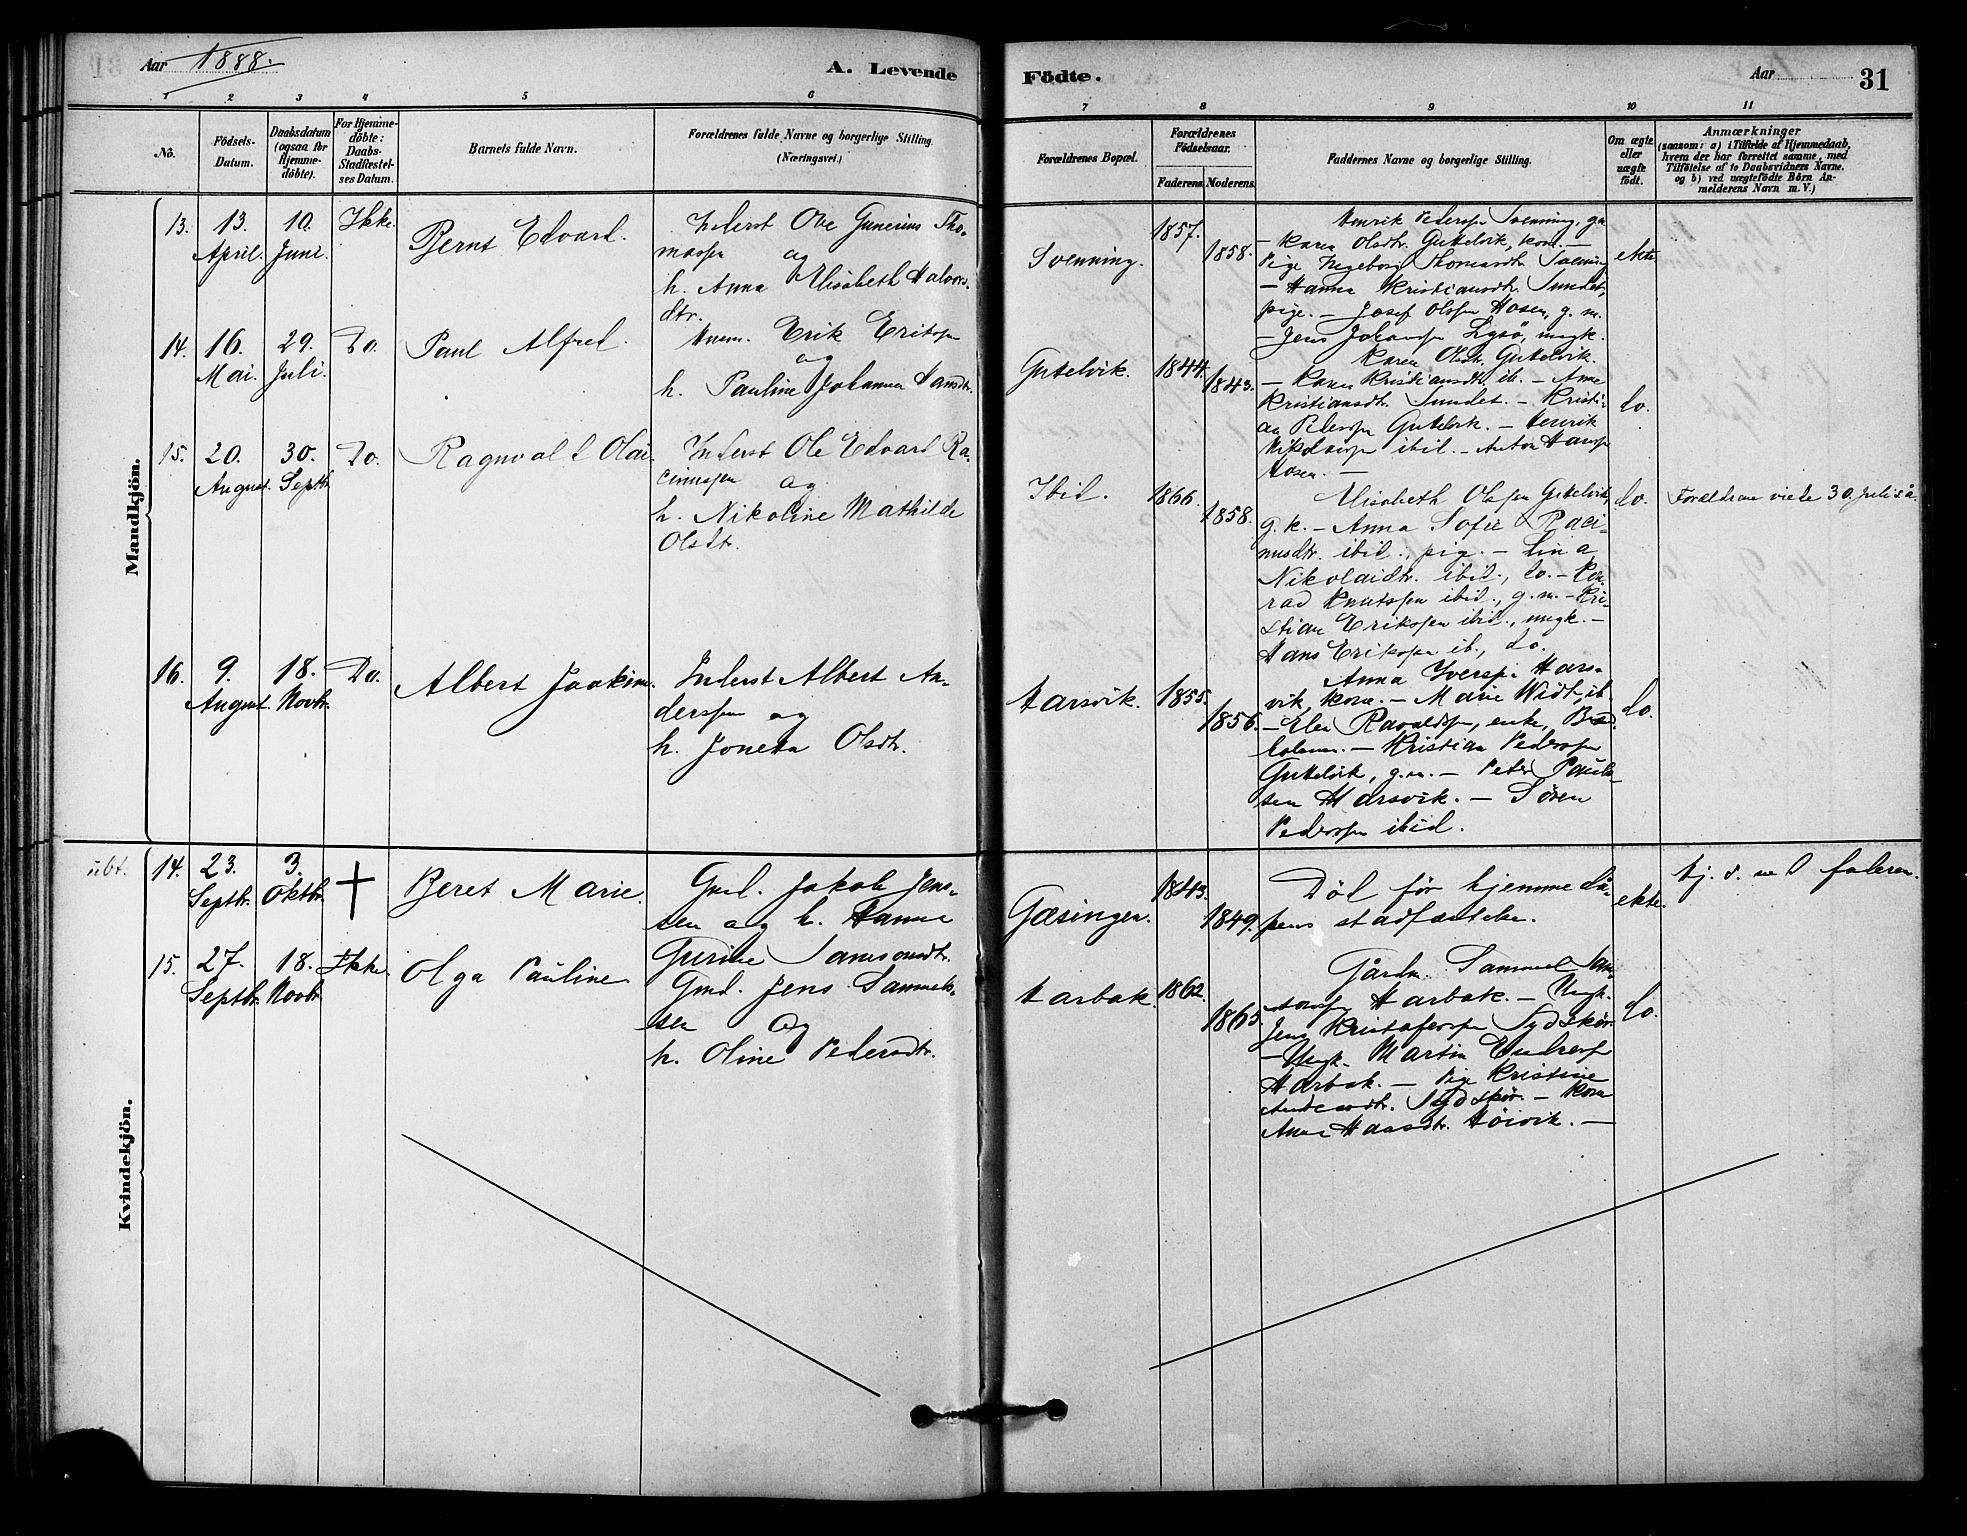 Aar 1888.
A. Levende
Födte.
Aar
31
1 2 3 4 5 6 7 8 9 10 11
No.
Födsels-
Datum.
Daabsdatum
(ogsaa for
Hjemme-
döbte).
For Hjemme-
döbte:
Daabs-
Stadfæstel-
ses Datum.
Barnets fulde Navn.
Forældrenes fulde Navne og borgerlige Stilling.
(Næringsvei.)
Forældrenes Bopæl.
Forældrenes
Födselsaar.
Faderens. Moderens.
Faddernes Navne og borgerlige Stilling.
Om ægte
eller
uægte
födt.
Anmærkninger
(saasom: a) i Tilfælde af Hjemmedaab,
hvem der har forrettet samme, med
Tilföielse af to Daabsvidners Navne.
og b) ved uægtefödte Börn An-
melderens Navn m. V.)
Mandkjön.
13.
13.
April.
10.
Juni.
Ikke.
Bernt Edvard.
Inderst Ole Gunerius Tho-
massen og
h. Anna Elisabeth Halvors-
dtr.
Svenning.
1857.
1858.
Henrik Pedersen Svenning, gm
– Karen Olsdtr. Guttelvik, kone. –
Pige Ingeborg Thomasdtr. Svenning
– Hanna Kristiansdtr. Sundet,
pige. – Josef Olsen Hosen, g. m.
– Jens Johansen Lysö, ungk.
ekte
14.
16.
Mai.
29.
Juli.
Do.
Paul Alfred.
Erik Eriksen
og
h. Pauline Johanna Hansdtr.
Guttelvik.
1844.
1843.
Karen Olsdtr. Guttelvik.
– Karen Kristiansdtr. ib. – Anne
Kristiansdtr. Sundet. – Kristi-
an Pedersen Guttelvik. – Henrik
Nikolaisen ibid. – Anton Hansen
Hosen. –
do.
15.
20.
August.
30.
Septbr.
Do.
Ragnvald Olai.
Inderst Ole Edvard Ra-
cinussen og
h. Nikoline Mathilde
Olsdtr.
Ibid.
1866.
1858.
Elisabeth Olsen Guttelvik
g. k. – Anna Sofie Raci-
nusdtr. ibid., pig. – Lina
Nikolaidtr. ibid., do. – Kon-
rad Knutssen ibid., g. m. – Kri-
stian Erikssen ibid., ungk. –
Hans Eriksen ib., do.
do.
Forældrene viede 30. juli s. å.
16.
9.
August.
18.
Novbr.
Do.
Albert Joakim.
Inderst Albert An-
derssen og
h. Joneta Olsdtr.
Harsvik.
1855.
1856.
Anna Iversen Hars-
vik, kone. – Marie Widt, ib.
– Elen Ravaldsen, enke,
– Kristian Pedersen
Guttelvik, g. m. – Peter Paul-
sen Harsvik. – Sören
Pederssen ibid.
do.
Kvindekjön.
ubt.
14.
23.
Septbr.
3.
Oktbr.
Beret Marie.
Gmd. Jakob Jens-
sen og h. Hanna
Gurine Samsonsdtr.
Gæsingen.
1843.
1849.
Död før hjemmedå-
pens stadfæstelse.
ekte.
hj. d. ved faderen.
15.
27.
Septbr.
18.
Novbr.
Ikke.
Olga Pauline
Gmd. Jens Sammels-
sen og
h. Oline Pedersdtr.
Harbak.
1862.
1865.
Gårdm. Sammuel Sam-
sonsen Harbak. – Ungk.
Jens Kristofersen Sydskör.
– Ungk. Martin Endresen
Harbak. – Pige Kristine
Andersdtr. Sydskör. – Kone
Anne Hansdtr. Höivik. –
do.